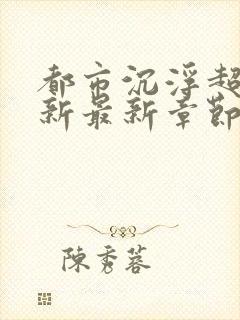 都市沉浮超
新最新章節
陳秀蓉